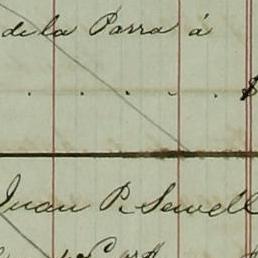 de la Parra á
. . . . . $
Juan P. Sewell